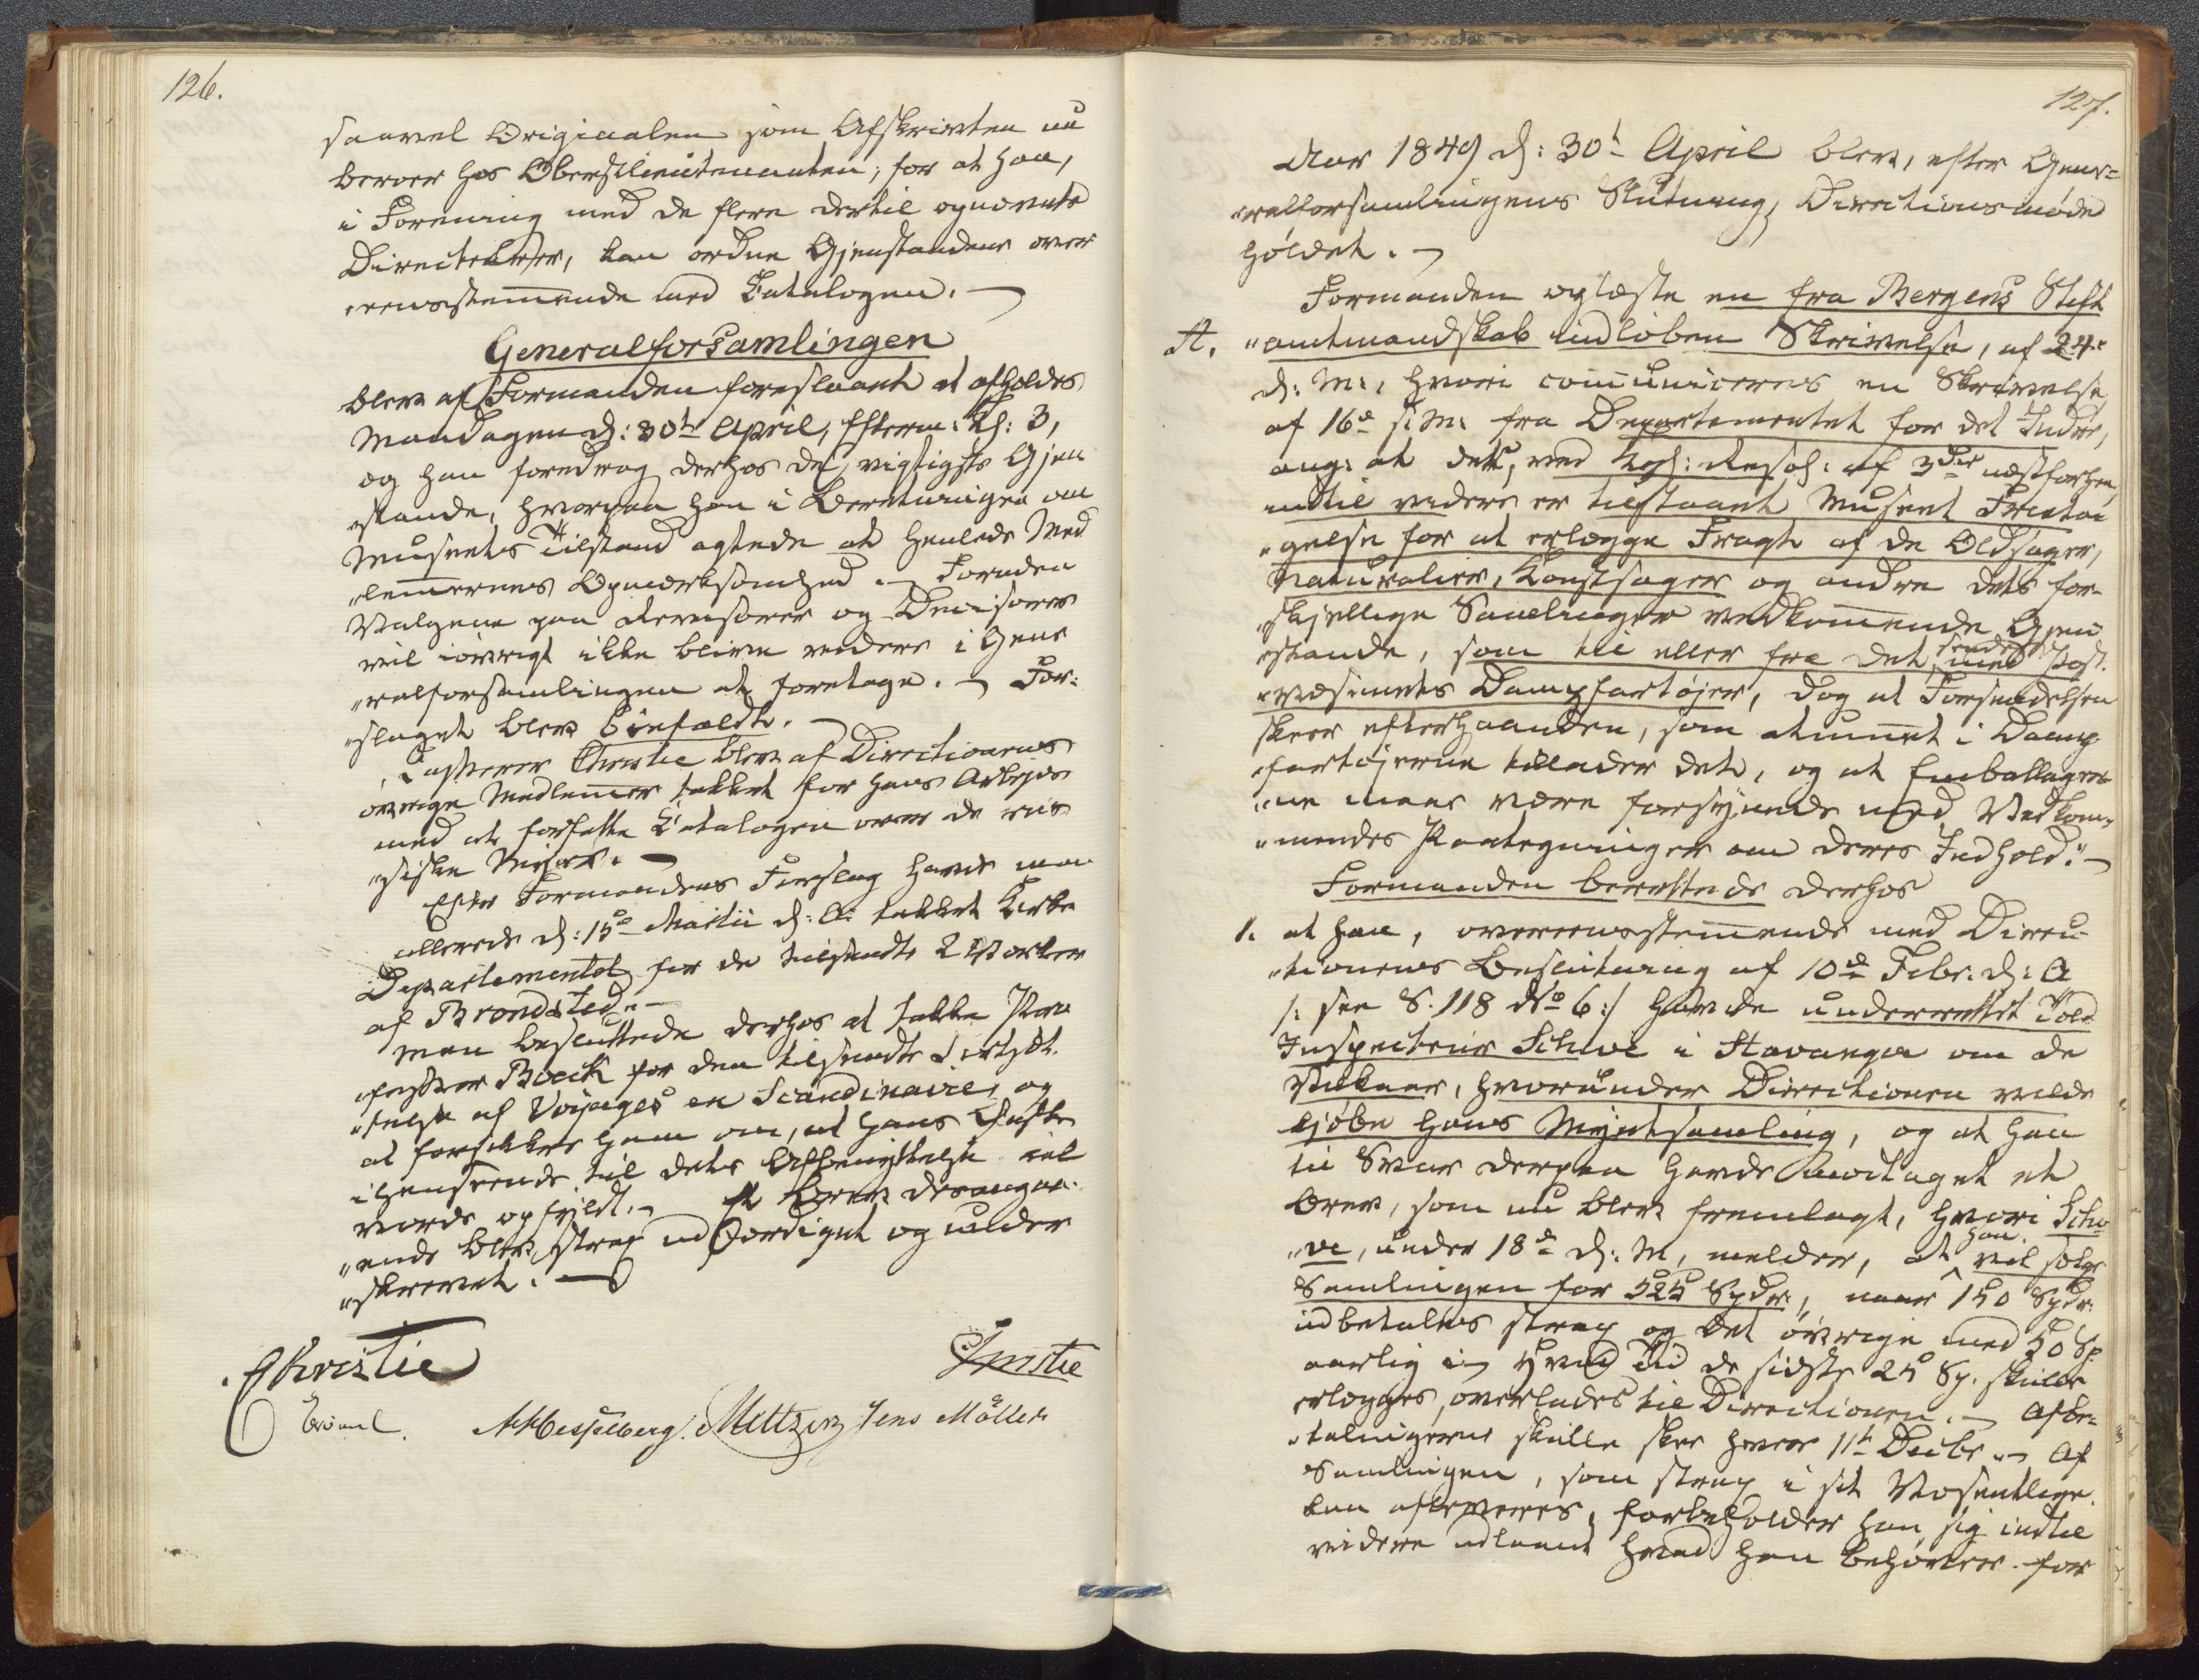 126.
saavel Originalen som Afskriften nu
beroer hos Oberstlieutenanten, for at han,
i Forening med de flere dertil opnævnte
Directeurer, kan ordne Gjenstandene over
„eensstem̅ende med Catalogen. —
Generalforsamlingen
blev af Formanden foreslaaet at afholdes
Mandagen d: 30te April, Efterm: Kl: 3,
og han foredrog derhos de vigtigste Gjen
„stande, hvorpaa han i Beretningen om
Museets Tilstand agtede at henlede Med
„lem̅ernes Opmærksomhed. — Foruden
Valgene paa Revisorer og Decisorer
vil iøvrigt ikke blive videre i Gene
„ralforsamlingen at foretage. — For:
„slaget blev bifaldt. —
Lasserer Christie blev af Directionens
øvrige Medlem̅er takket for hans Arbejde
med at forfatte Catalogen over de rus
„siske Mynter. —
Efter Formandens Forslag havde man
allerede d: 15de Martii d: A: takket Kirke
Departementet for de tilsendte 2 Værker
af Brøndsted. —
Man besluttede derhos at takke Pro
„fessor Boeck for den tilsendte Fortsæt.
„telse af Voyages en Scandinavie, og
at forsikkre ham om, at hans Ønske
i Henseende til dets Afbenyttelse vil
vorde opfyldt. — Et Brev desangaa-
„ende blev strax udfærdiget og under
„skrevet. —
Christie
Christie
Irgens. A Hesselberg. Meltzer Jens Møller
127.
Aar 1849 d: 30te April blev, efter Gene=
„ralforsamlingens Slutning, Directionsmøde
holdet. —
Formanden oplæste en fra Bergens Stift
A. „amtmandskab indløben Skrivelse, af 24de
d: M:, hvori com̅uniceres en Skrivelse
af 16de s: M: fra Departementet for det Indre,
ang: at det, ved Kgl: Resol: af 3die næstforhen,
indtil videre er tilstaaet Museet Fritta
„gelse for at erlægge Fragt af de Oldsager,
Naturalier, Konstsager og andre dets for-
„skjellige Samlinger vedkom̅ende Gjen
„stande, som til eller fra det sendes med Post.
„væsenets Dampfartøjer, dog at Forsendelsen
skeer efterhaanden, som Rum̅et i Damp
„fartøjerne tillader det, og at Emballager
„ne maae være forsynede med Vedkom̅
„mendes Paategninger om deres Indhold." —
Formanden berettede derhos
1. at han, overeensstem̅ende med Direc
„tionens Beslutning af 10de Febr: d: A
/: see S. 118 No 6:/ havde underrettet Told
Inspecteur Schive i Stavanger om de
Vilkaar, hvorunder Directionen vilde
kjøbe hans Myntsamling, og at han
til Svar derpaa havde modtaget et
Brev, som nu blev fremlagt, hvori Schi
„ve, under 18de d: M, melder, at han vil sælge
Samlingen for 525 Spdr:, naar 150 Spdr:
udbetales strax og det øvrige med 50 Sp.
aarlig — Hvad Tid de sidste 25 Sp. skulle
erlægges, overlades til Directionen. — Afbe-
„talingerne skulle skee hver 11te Decbr. — Af
Samlingen, som strax i sit Væsentlige
kan afleveres, forbeholder han sig indtil
videre udlaant hvad han behøver for